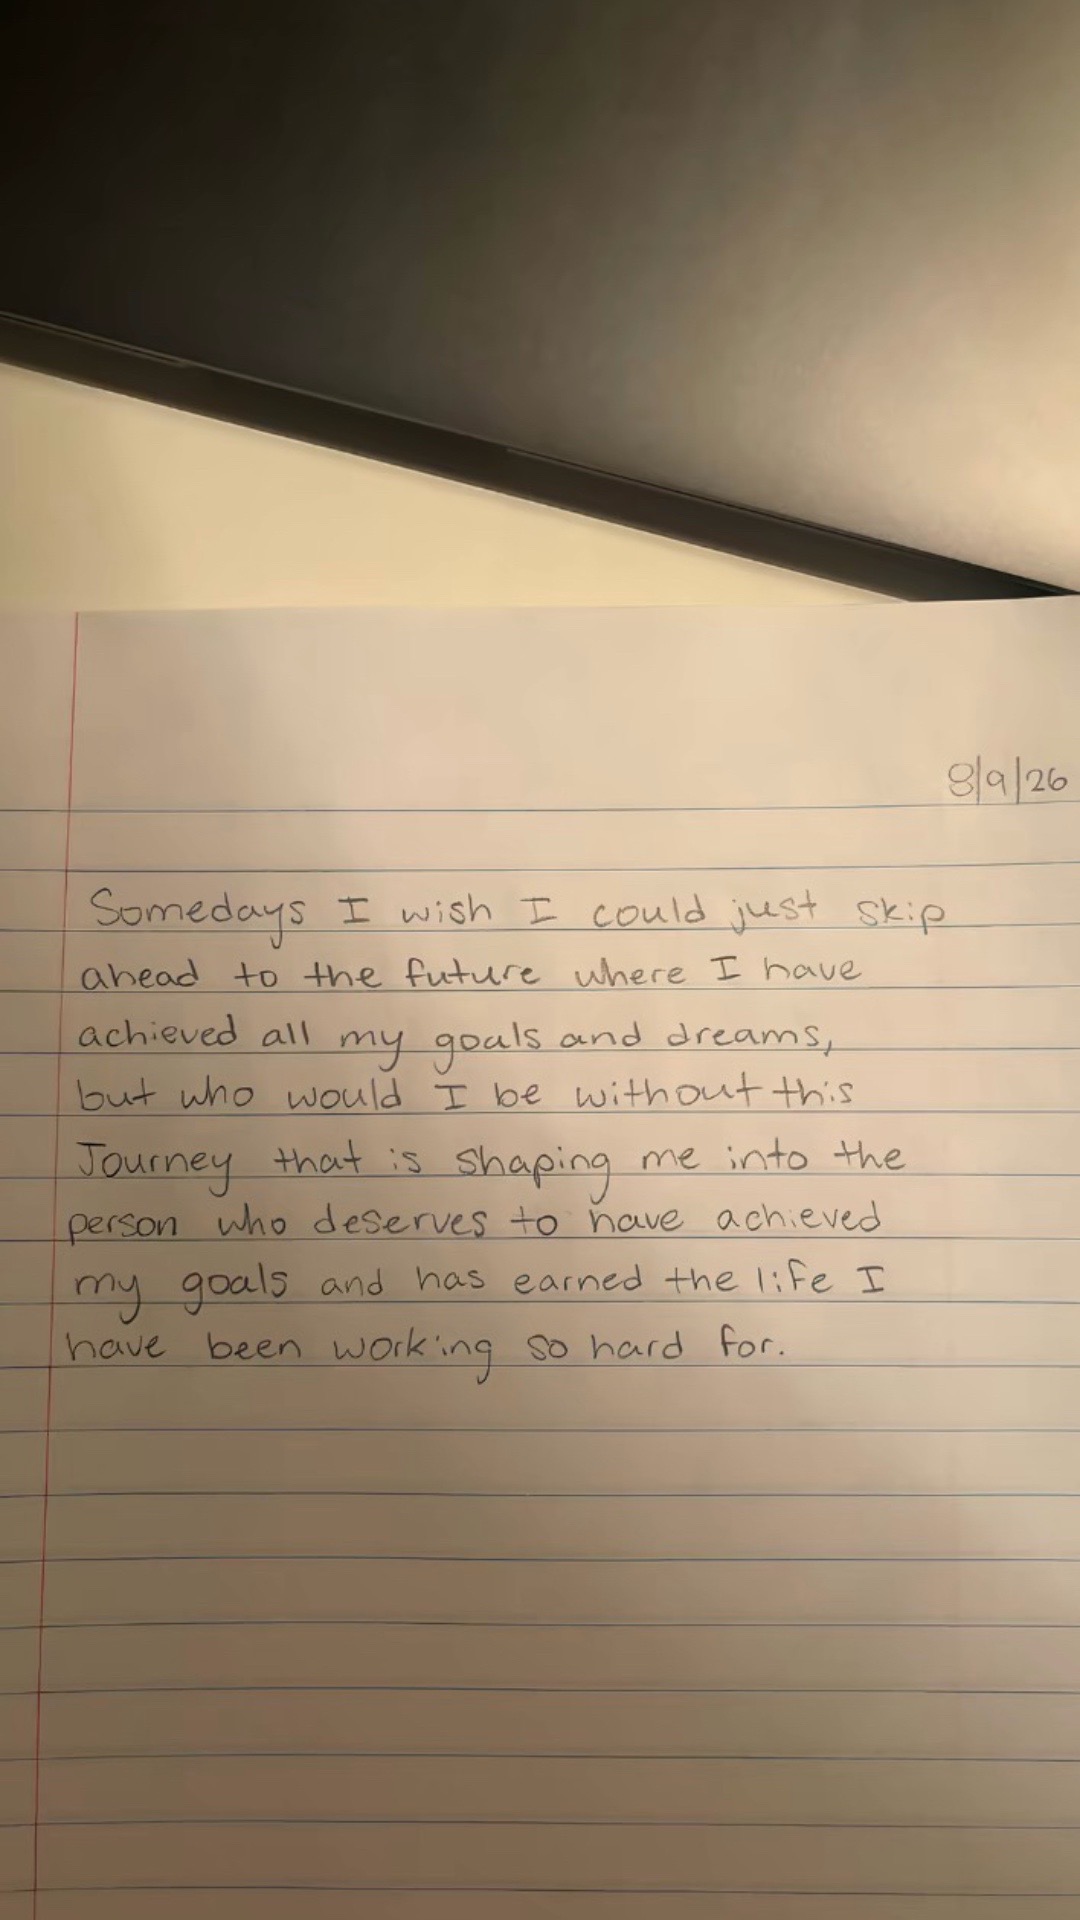 8/9/26
Somedays I wish I could just skip
ahead to the future where I have
achieved all my goals and dreams,
but who would I be without this
Journey that is shaping me into the
person who deserves to have achieved
my goals and has earned the life I
have been working so hard for.